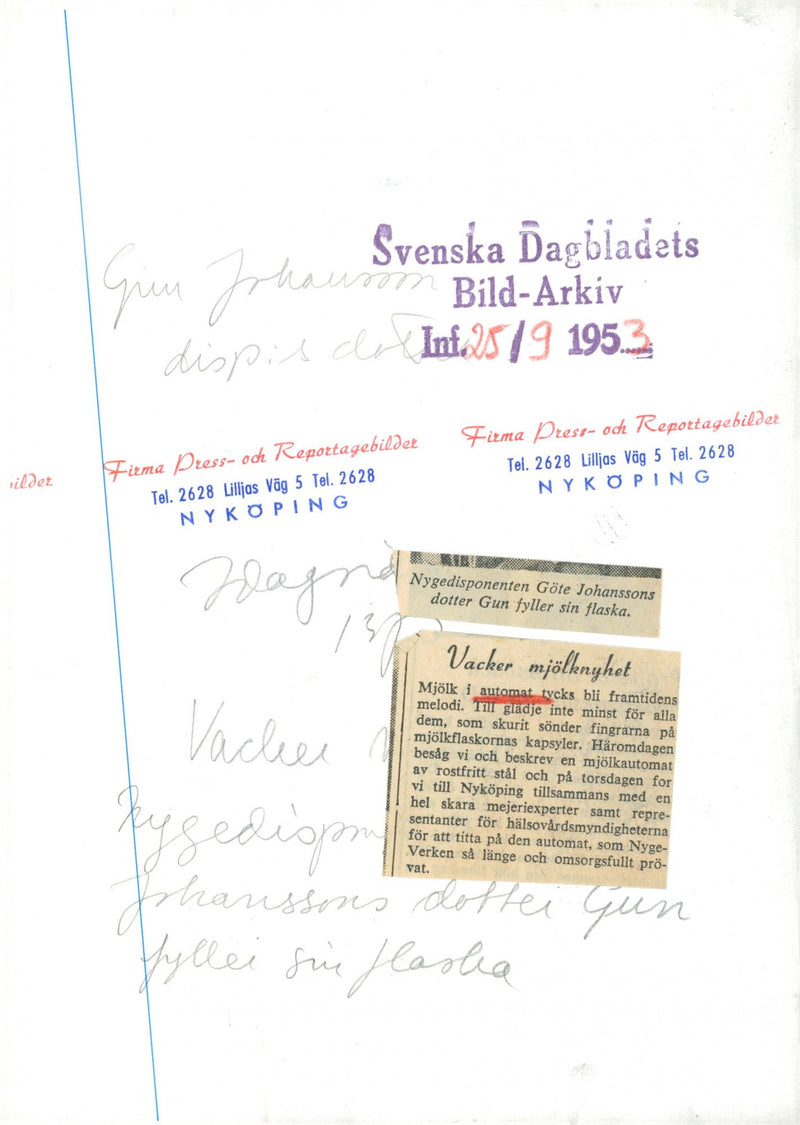 Svenska Dagbladets
Bild-Arkiv
Inf. 25/9 1953
Gun Johansson
disp:s dotter
Firma Press- och Reportagebilder
Tel. 2628 Lilljas Väg 5 Tel. 2628
NYKÖPING
Firma Press- och Reportagebilder
Tel. 2628 Lilljas Väg 5 Tel. 2628
NYKÖPING
ilder
Idagsid
13/
Nygedisponenten Göte Johanssons
dotter Gun fyller sin flaska.
Vacker mjölknyhet
Mjölk i automat tycks bli framtidens
melodi. Till glädje inte minst för alla
dem, som skurit sönder fingrarna på
mjölkflaskornas kapsyler. Häromdagen
besåg vi och beskrev en mjölkautomat
av rostfritt stål och på torsdagen for
vi till Nyköping tillsammans med en
hel skara mejeriexperter samt repre-
sentanter för hälsovårdsmyndigheterna
för att titta på den automat, som Nyge-
Verken så länge och omsorgsfullt prö-
vat.
Vacker
Nygedispon
Johanssons dotter Gun
fyller sin flaska